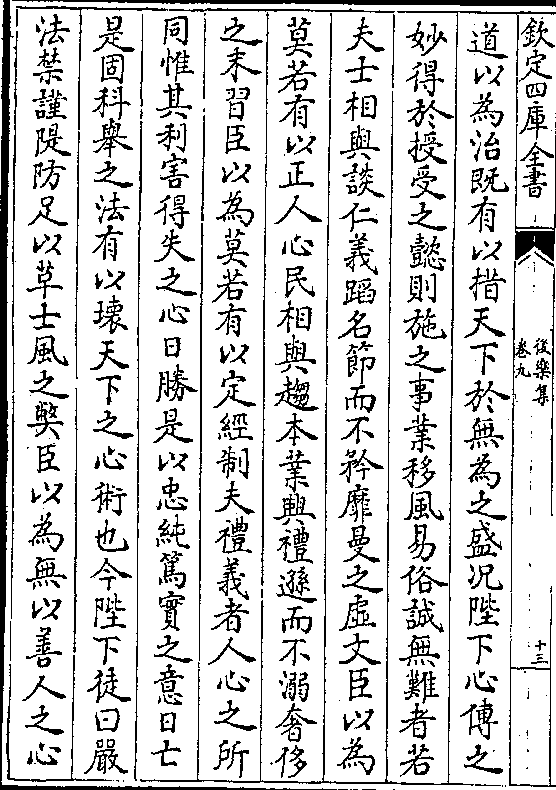 欽定四庫全書
後樂集
卷九
十三
道以為治既有以措天下於無為之盛况陛下心傳之
妙得於授受之懿則施之事業移風易俗誠無難者若
夫士相與談仁義蹈名節而不矜靡曼之虛文臣以為
莫若有以正人心民相與趨本業興禮遜而不溺奢侈
之末習臣以為莫若有以定經制夫禮義者人心之所
同惟其利害得失之心日勝是以忠純篤實之意日亡
是固科舉之法有以壊天下之心術也今陛下徒曰嚴
法禁謹隄防足以革士風之獘臣以為無以善人之心